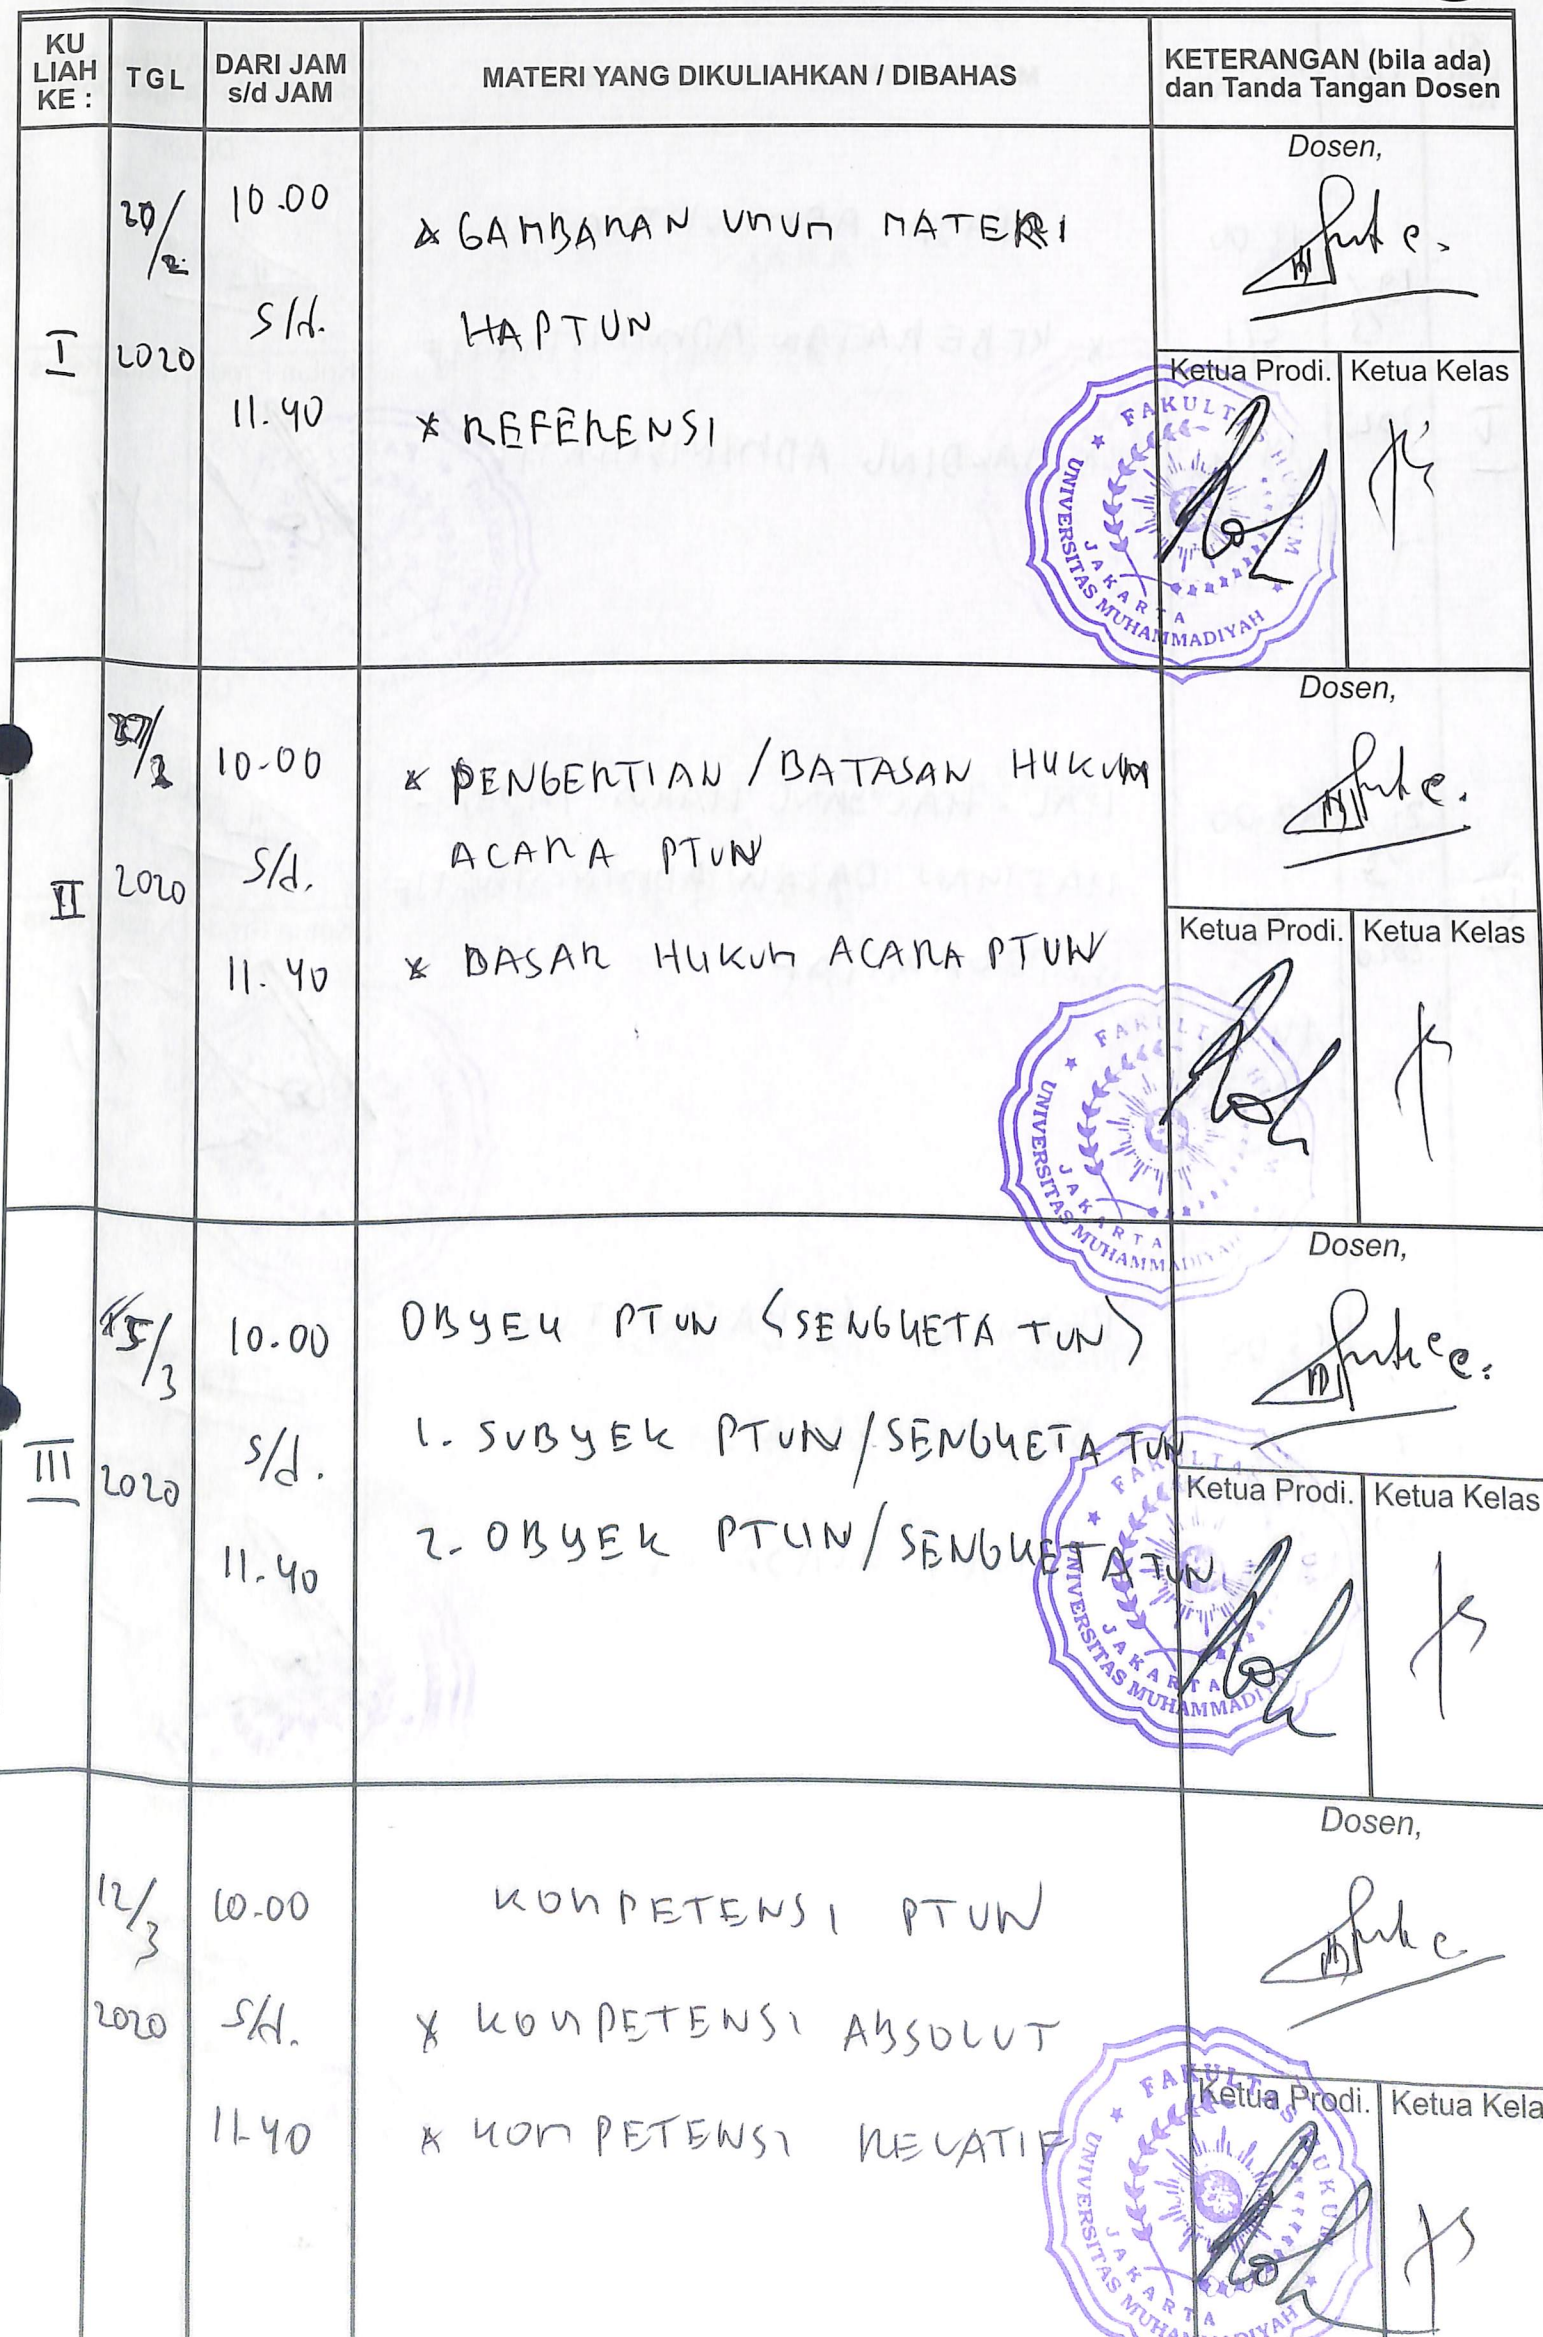 KU LIAH KE :
TGL
DARI JAM s/d JAM
MATERI YANG DIKULIAHKAN / DIBAHAS
KETERANGAN (bila ada) dan Tanda Tangan Dosen
I
20/2
2020
10.00
s/d.
11.40
* GAMBARAN UMUM MATERI
HAPTUN
* REFERENSI
Dosen,
Ketua Prodi.
Ketua Kelas
FAKULTAS HUKUM
UNIVERSITAS MUHAMMADIYAH
JAKARTA
II
27/2
2020
10.00
s/d.
11.40
* PENGERTIAN / BATASAN HUKUM
ACARA PTUN
* DASAR HUKUM ACARA PTUN
Dosen,
Ketua Prodi.
Ketua Kelas
FAKULTAS
UNIVERSITAS MUHAMMADIYAH
JAKARTA
III
5/3
2020
10.00
s/d.
11.40
OBYEK PTUN (SENGKETA TUN)
1. SUBYEK PTUN/SENGKETA TUN
2. OBYEK PTUN/SENGKETA TUN
Dosen,
Ketua Prodi.
Ketua Kelas
FAKULTAS
UNIVERSITAS MUHAMMADIYAH
JAKARTA
12/3
2020
10.00
s/d.
11.40
KOMPETENSI PTUN
* KOMPETENSI ABSOLUT
* KOMPETENSI RELATIF
Dosen,
Ketua Prodi.
Ketua Kela
FAKULTAS HUKUM
UNIVERSITAS MUHAMMADIYAH
JAKARTA